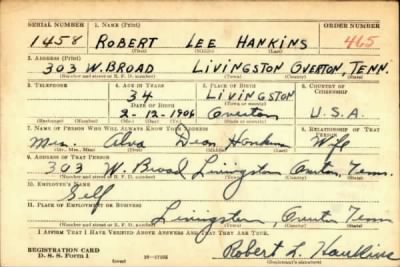 SERIAL NUMBER 1. NAME (Print) ORDER NUMBER
1458 ROBERT LEE HANKINS 465
2. ADDRESS (Print)
303 W. BROAD LIVINGSTON OVERTON, TENN.
(Number and street or R. F. D. number) (Town) (County) (State)
3. TELEPHONE 4. AGE IN YEARS 5. PLACE OF BIRTH 6. COUNTRY OF CITIZENSHIP
34 LIVINGSTON
DATE OF BIRTH (Town or county)
2-12-1906 Overton U.S.A.
(Exchange) (No.) (Mo.) (Day) (Yr.) (State or country)
7. NAME OF PERSON WHO WILL ALWAYS KNOW YOUR ADDRESS 8. RELATIONSHIP OF THAT PERSON
Mrs. Alva Dean Hankins Wife
(Mr., Mrs., Miss) (First) (Middle) (Last)
9. ADDRESS OF THAT PERSON
303 W. Broad Livingston Overton, Tenn.
(Number and street or R. F. D. number) (Town) (County) (State)
10. EMPLOYER'S NAME
Self
11. PLACE OF EMPLOYMENT OR BUSINESS
Livingston, Overton Tenn
(Number and street or R. F. D. number) (Town) (County) (State)
I AFFIRM THAT I HAVE VERIFIED ABOVE ANSWERS AND THAT THEY ARE TRUE.
REGISTRATION CARD
D. S. S. Form 1 Robert L. Hankins
(over) 16-17105 (Registrant's signature)